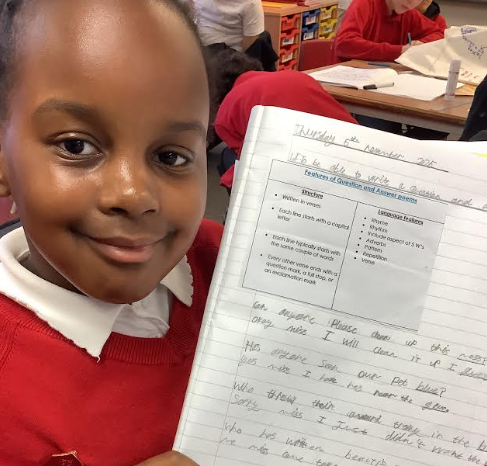 Thursday 5th November 2015
to be able to write a question and
Features of Question and Answer poems
Structure
Written in verses
Each line starts with a capital letter
Each line typically starts with the same couple of words
Every other verse ends with a question mark, a full stop, or an exclamation mark
Language Features
Rhyme
Rhythm
Include aspect of 5 W's
Adverbs
Pattern
Repetition
Verse
Can anyone Please clean up this mess?
okay miss I will clean it up I guess
Has anyone seen our pot blue?
miss I have near the glue
Who threw their around in the
Sorry miss I Just didn't the
Who has written
me miss